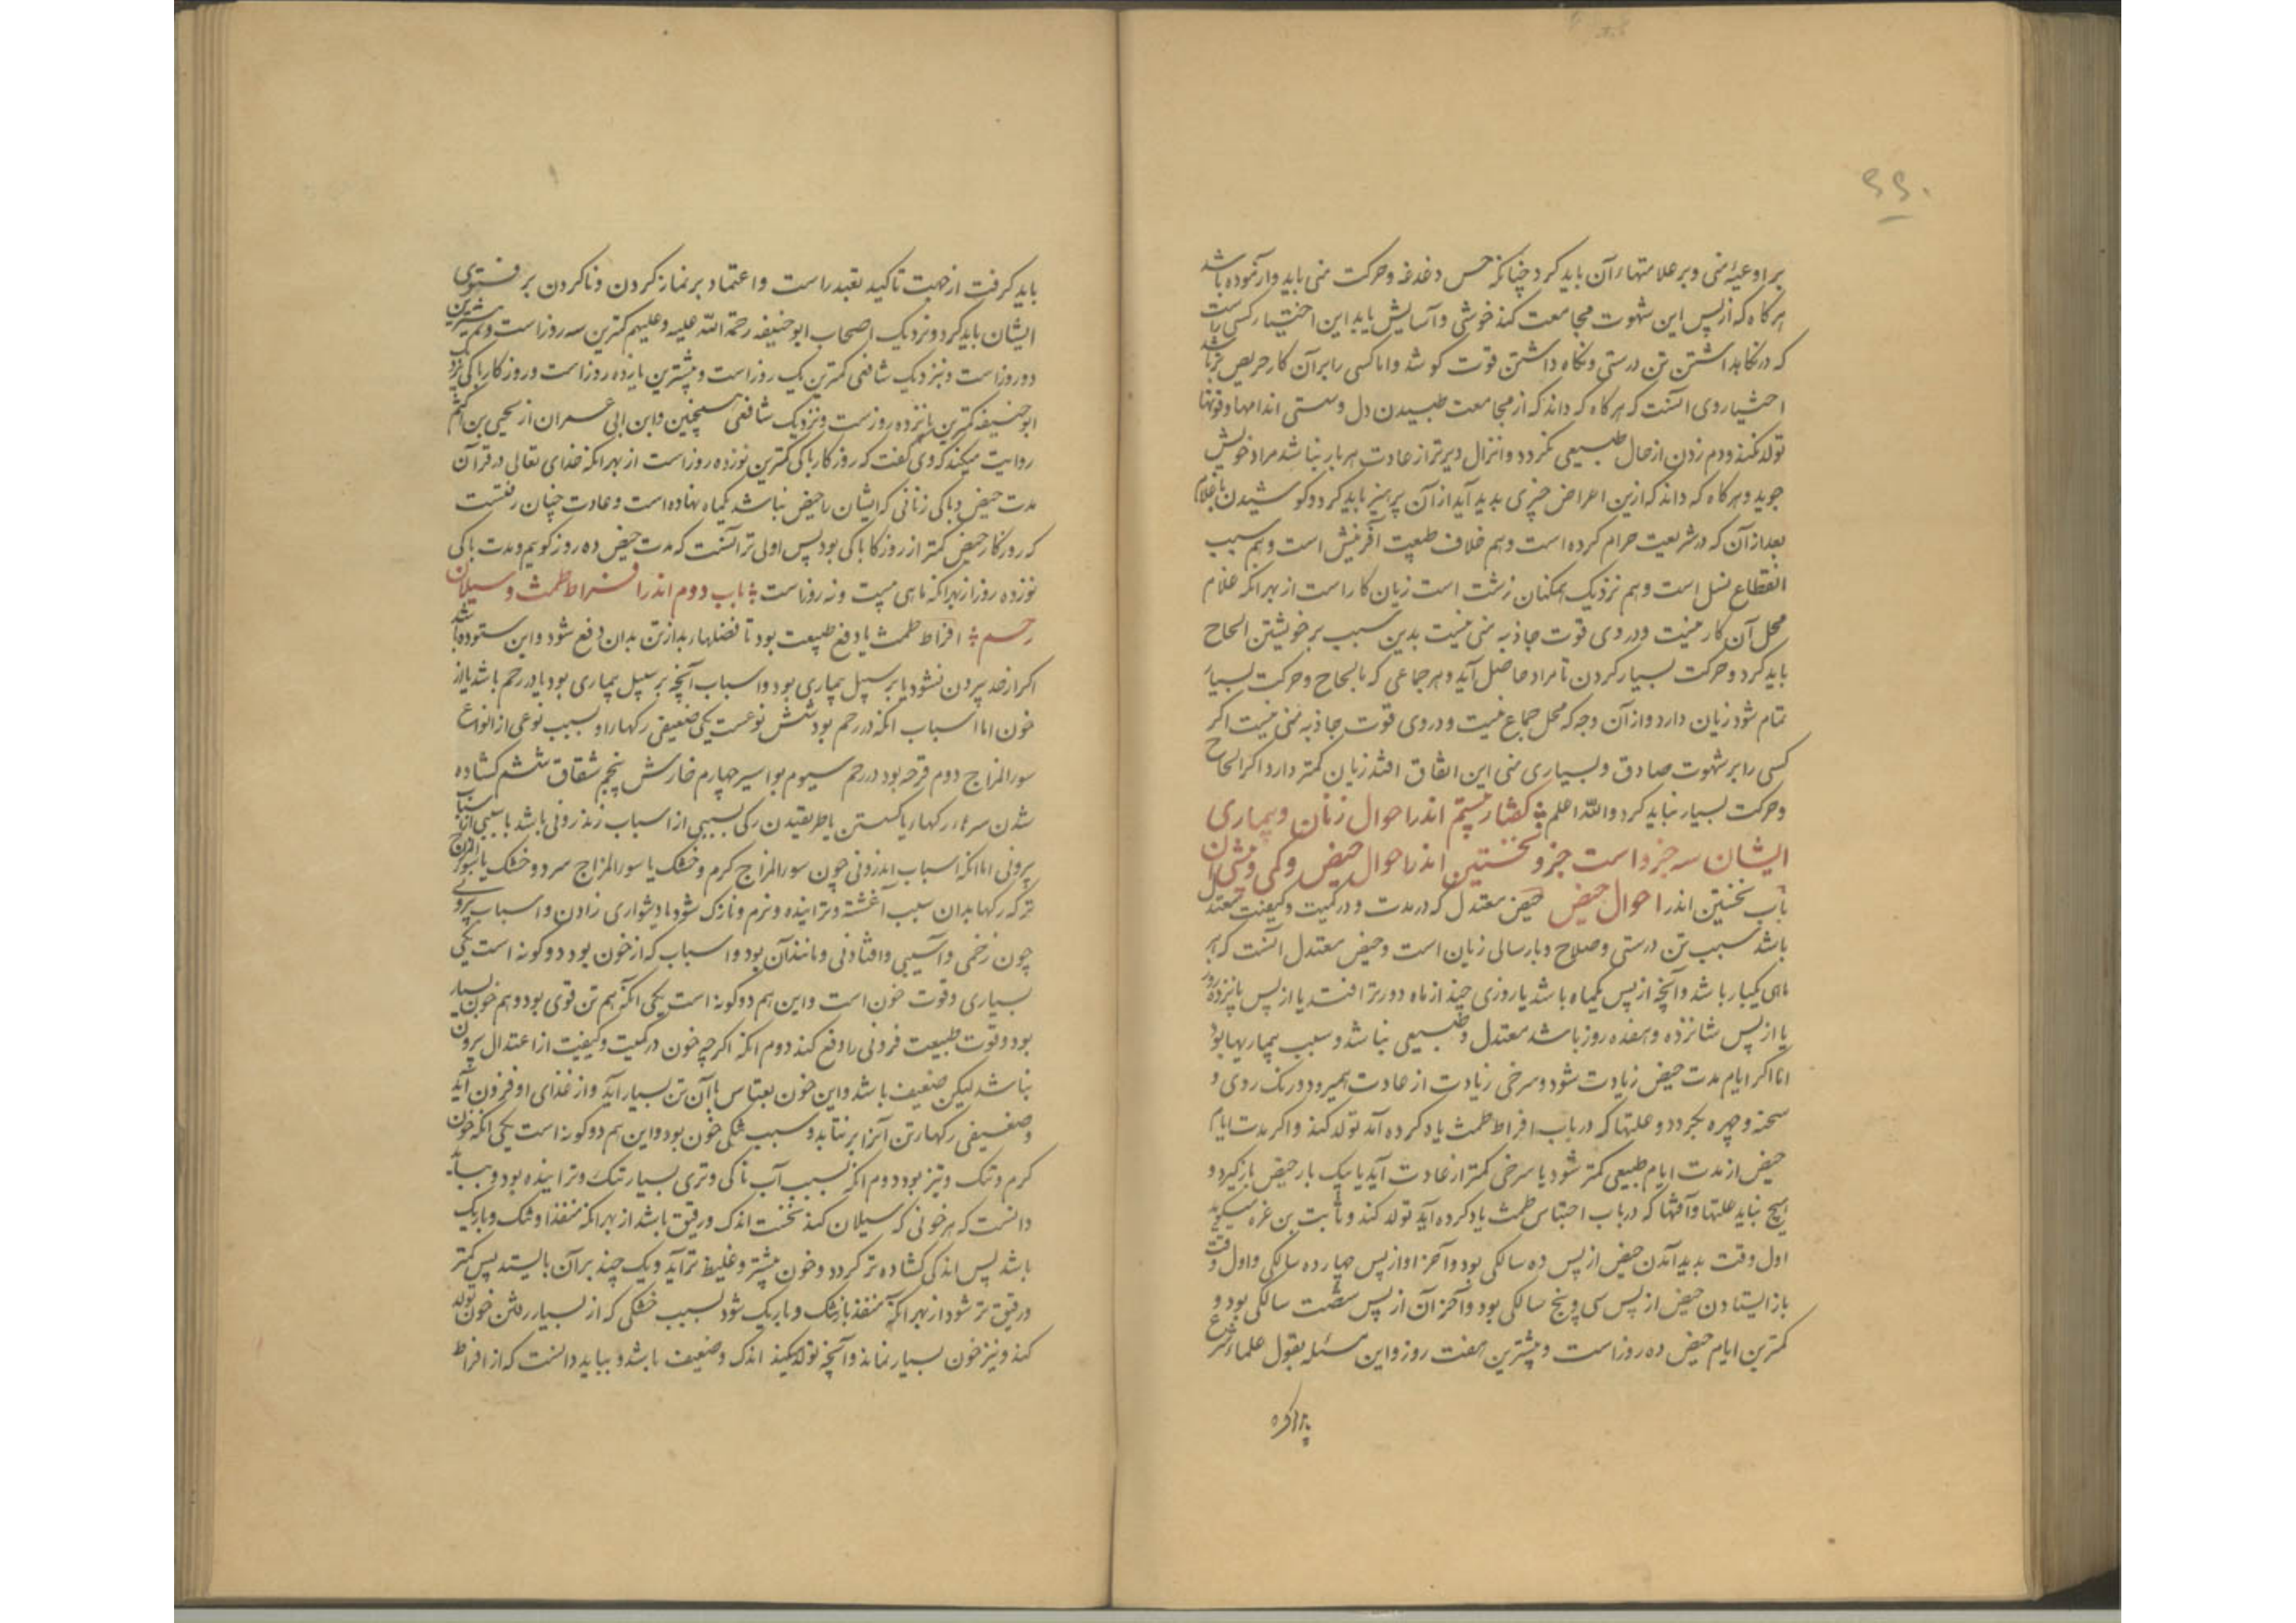 ۶۶۰
بر اوعیهٔ منی و بر علامتهاء آن باید کرد چنانکه حس دغدغه و حرکت منی باید و ارنموده باشد
هرکاه که از پس این شهوت مجامعت کند خوشی و آسایش یابد این اختیار کسی راست
که در نکاهداشتن تن درستی و نکاه داشتن قوت کوشد و اما کسی را بر آن کار حریص تر باشد
اختیار وی آنست که هرکاه که داند که از مجامعت طبیدن دل و سستی اندامها و قوتها
تولد نکند و دم زدن از حال طبیعی نکردد و انزال دیرتر از عادت هر بار نباشد مراد خویش
جوید و هرکاه که داند که ازین اعراض چیزی بدید آید از آن پرهیز باید کرد و کوشیدن با غلام
بعد از آن که در شریعت حرام کرده است و هم خلاف طبیعت آفرینش است و هم سبب
انقطاع نسل است و هم نزدیک همکنان زشت است زیان کار است از بهر آنکه غلام
محل آن کار نیست و در وی قوت جاذبه منی نیست بدین سبب بر خویشتن الحاح
باید کرد و حرکت بسیار کردن تا مراد حاصل آید و هر جماعی که بالحاح و حرکت بسیار
تمام شود زیان دارد و از آن وجه که محل جماع نیست و در وی قوت جاذبه منی نیست اکر
کسی را بر شهوت صادق و بسیاری منی این اتفاق افتد زیان کمتر دارد اکر الحاح
و حرکت بسیار نباید کرد والله اعلم کفتار بیستم اندر احوال زنان و بیماری
ایشان سه جزو است جزو نخستین اندر احوال حیض و کمی و بیشی آن
باب نخستین اندر احوال حیض حیض معتدل که در مدت و در کمیت و کیفیت معتدل
باشد سبب تن درستی و صلاح و پارسائی زنان است و حیض معتدل آنست که هر
ماهی یکبار باشد و آنچه از پس یکماه باشد یا روزی چند از ماه دورتر افتد یا از پس پانزده روز
یا از پس شانزده و هفده روز باشد معتدل و طبیعی نباشد و سبب بیماریها بود
اما اکر ایام مدت حیض زیادت شود و سرخی زیادت از عادت همیرود و رنک روی و
سحنه و چهره بکردد و علتها که در باب افراط طمث یاد کرده آمد تولد کند و اکر مدت ایام
حیض از مدت ایام طبیعی کمتر شود یا سرخی کمتر از عادت آید یا یک بار حیض بازکیرد و
هیچ نیاید علتها و آفتها که در باب احتباس طمث یاد کرده آید تولد کند و ثابت بن قره میکوید
اول وقت بدید آمدن حیض از پس ده سالکی بود و آخر او از پس چهارده سالکی و اول وقت
باز ایستادن حیض از پس سی و پنج سالکی بود و آخر آن از پس شصت سالکی بود و
کمترین ایام حیض ده روز است و بیشترین هفت روز و این مسئله بقول علماء شرع
باید کرفت از جهت تاکید تعبد راست و اعتماد بر نماز کردن و ناکردن بر فتوی
ایشان باید کرد و نزدیک اصحاب ابوحنیفه رحمة الله علیه و علیهم کمترین سه روز است و بیشترین
ده روز است و بنزدیک شافعی کمترین یک روز است و بیشترین پانزده روز است و روزکار پاکی نزدیک
ابوحنیفه کمترین پانزده روز است و نزدیک شافعی همچنین و ابن ابی عمران از یحیی بن اکثم
روایت میکند که وی کفت که روزکار پاکی کمترین نوزده روز است از بهر آنکه خدای تعالی در قرآن
مدت حیض و پاکی زنانی که ایشان را حیض نباشد یکماه نهاده است و عادت چنان رفتست
که روزکار حیض کمتر از روزکار پاکی بود پس اولی تر آنست که مدت حیض ده روز کویم و مدت پاکی
نوزده روز از بهر آنکه ماهی بیست و نه روز است باب دوم اندر افراط طمث و سیلان
رحم افراط طمث یا دفع طبیعت بود تا فضلهاء بد از تن بدان دفع شود و این ستوده باشد
اکر از حد بیرون نشود یا بر سبیل بیماری بود و اسباب آنچه بر سبیل بیماری بود یا در رحم باشد یا از
خون اما اسباب آنکه در رحم بود شش نوعست یکی ضعیفی رکهاء او بسبب نوعی از انواع
سوءالمزاج دوم قرحه بود در رحم سیوم بواسیر چهارم خارش پنجم شقاق ششم کشاده
شدن سرهاء رکها یا کسستن یا طرقیدن رکی بسببی از اسباب اندرونی باشد یا سببی از اسباب
بیرونی اما آنکه اسباب اندرونی چون سوءالمزاج کرم و خشک یا سوءالمزاج سرد و خشک یا سوءالمزاج
تر که رکها بدان سبب آغشته و ترابنده و نرم و نازک شود یا دشواری زادن و اسباب بیرونی
چون زخمی و آسیبی و افتادنی و مانند آن بود و اسباب که از خون بود دوکونه است یکی
بسیاری و قوت خون است و این هم دوکونه است یکی آنکه هم تن قوی بود و هم خون بسیار
بود و قوت طبیعت فزونی را دفع کند دوم آنکه اکرچه خون در کمیت و کیفیت از اعتدال بیرون
نباشد لیکن ضعیف باشد و این خون بقیاس با آن تن بسیار آید و از غذای او فزون آید
و ضعیفی رکهاء تن آنرا برنتابد و سبب تنکی خون بود و این هم دوکونه است یکی آنکه خون
کرم و تنک و تیز بود دوم آنکه بسبب آب ناکی و تری بسیار تنک و ترابنده بود و بباید
دانست که هر خونی که سیلان کند نخست اندک و رقیق باشد از بهر آنکه منفذ او تنک و باریک
باشد پس اندکی کشاده تر کردد و خون بیشتر و غلیظ تر آید و یک چند بر آن بایستد پس کمتر
و رقیق تر شود از بهر آنکه منفذ باز تنک و باریک شود بسبب خشکی که از بسیار رفتن خون تولد
کند و نیز خون بسیار نماند و آنچه تولد کند اندک و ضعیف باشد و بباید دانست که از افراط